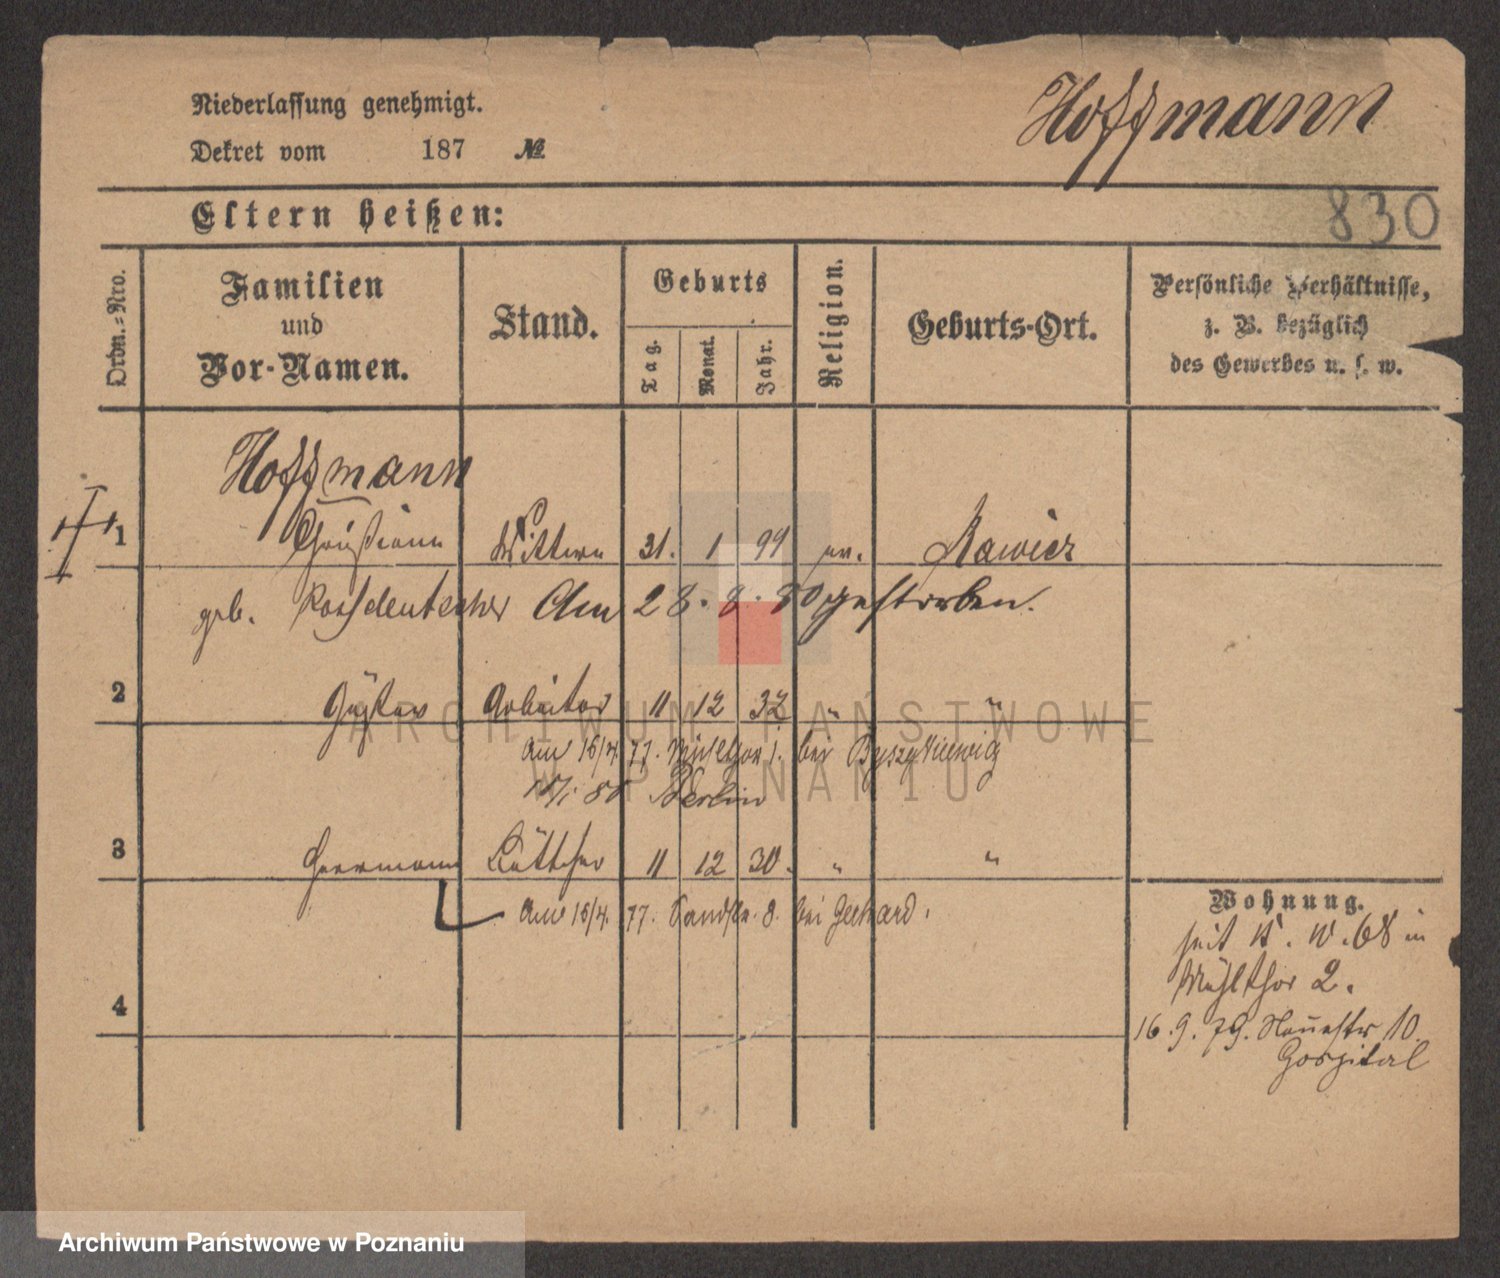 Niederlassung genehmigt.
Hoffmann
Dekret vom 187 №
Eltern heißen:
830
Ordn.=Nro.
Familien
und
Vor-Namen.
Stand.
Geburts
Tag.
Monat.
Jahr.
Religion.
Geburts-Ort.
Persönliche Verhältnisse,
z. B. bezüglich
des Gewerbes u. s. w.
Hoffmann
1 Christiane Wittwe 31. 1 99 ev. Rawicz
geb. Rossdeutscher Am 28. 8. 80 gestorben.
2 Gustav Arbeiter 11 12 32 " "
Am 16/4. 77. Mühlthor 1. bei
80 Berlin
3 Herrmann Böttcher 11 12 30. " "
Am 16/4. 77. Sandstr. 8. bei Gerhard.
4
Wohnung.
seit 15. 10. 68 in
Mühlthor 2.
16. 9. 79. Neuestr 10.
Hospital
ARCHIWUM PAŃSTWOWE
W POZNANIU
Archiwum Państwowe w Poznaniu